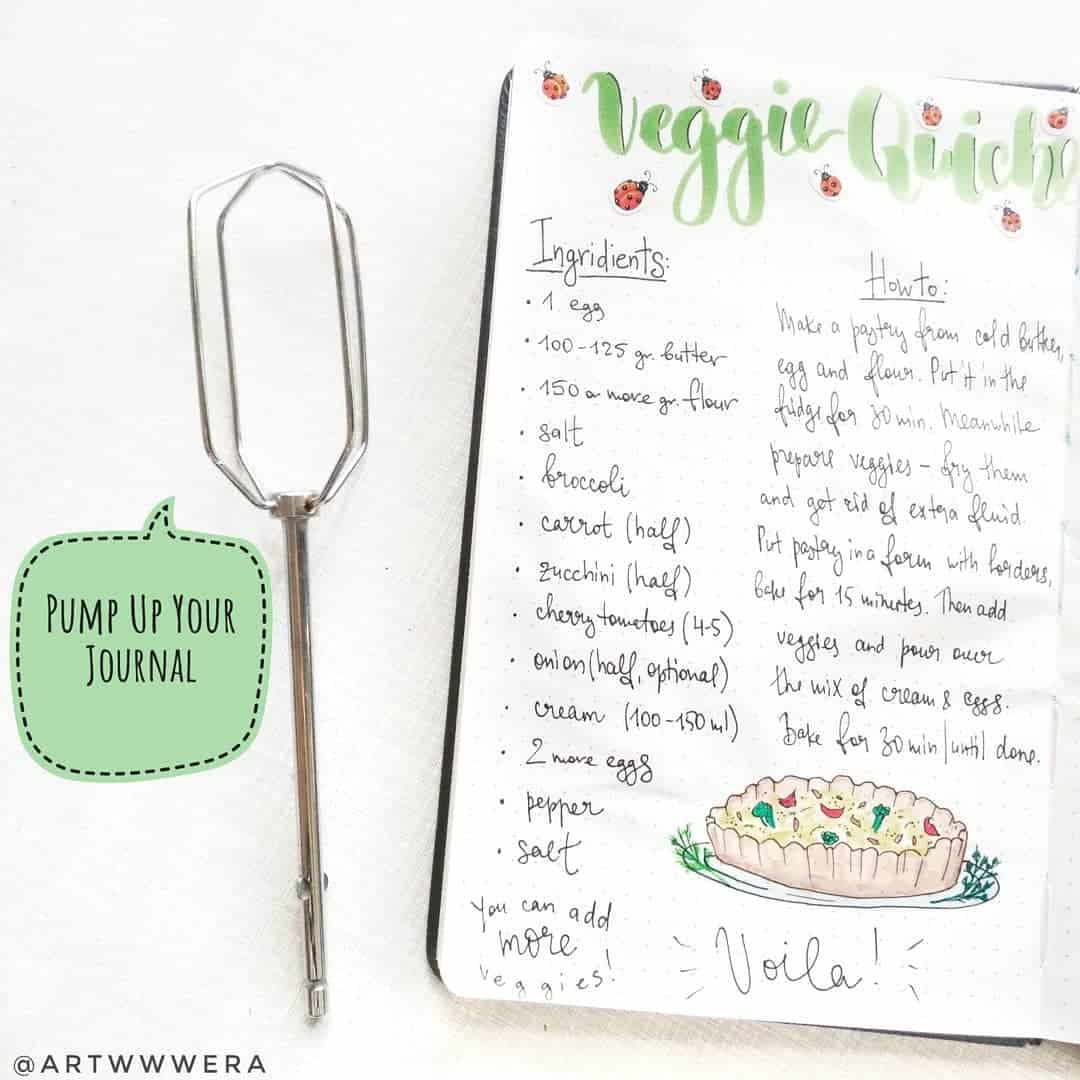 Veggie Quiche
Ingridients:
• 1 egg
• 100-125 gr. butter
• 150 or more gr. flour
• salt
• broccoli
• carrot (half)
• zucchini (half)
• cherry tomatoes (4-5)
• onion (half, optional)
• cream (100-150 ml)
• 2 more eggs
• pepper
• salt
You can add
more
veggies!
How to:
Make a pastry from cold butter,
egg and flour. Put it in the
fridge for 30 min. Meanwhile
prepare veggies - fry them
and get rid of extra fluid.
Put pastry in a form with borders,
bake for 15 minutes. Then add
veggies and pour over
the mix of cream & eggs.
Bake for 30 min/until done.
Voila!
PUMP UP YOUR
JOURNAL
@ARTWWWERA